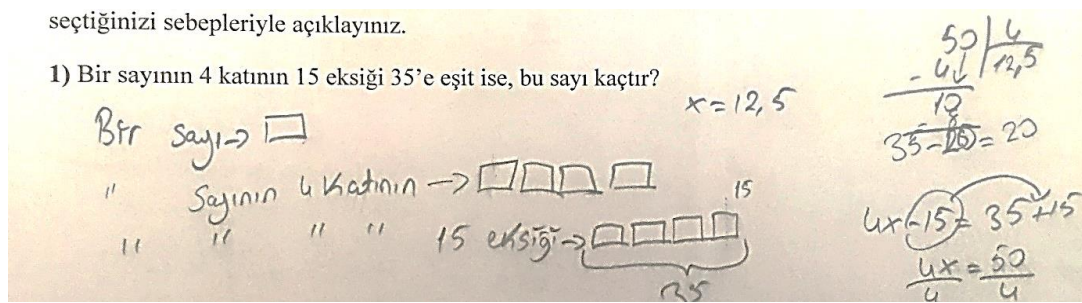 seçtiğinizi sebepleriyle açıklayınız.
1) Bir sayının 4 katının 15 eksiği 35'e eşit ise, bu sayı kaçtır?
x = 12,5
Bir sayı →
" Sayının 4 katının →
" " " " 15 eksiği →
15
35
50 | 4
- 4 | 12,5
10
35 - = 20
4x - 15 = 35 + 15
4x = 50
4 4